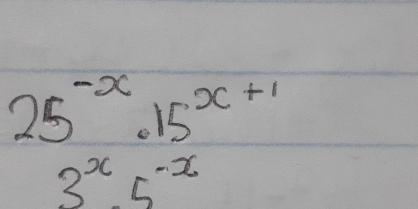 25^{-x} . 15^{x+1}
3^{x} . 5^{-x}